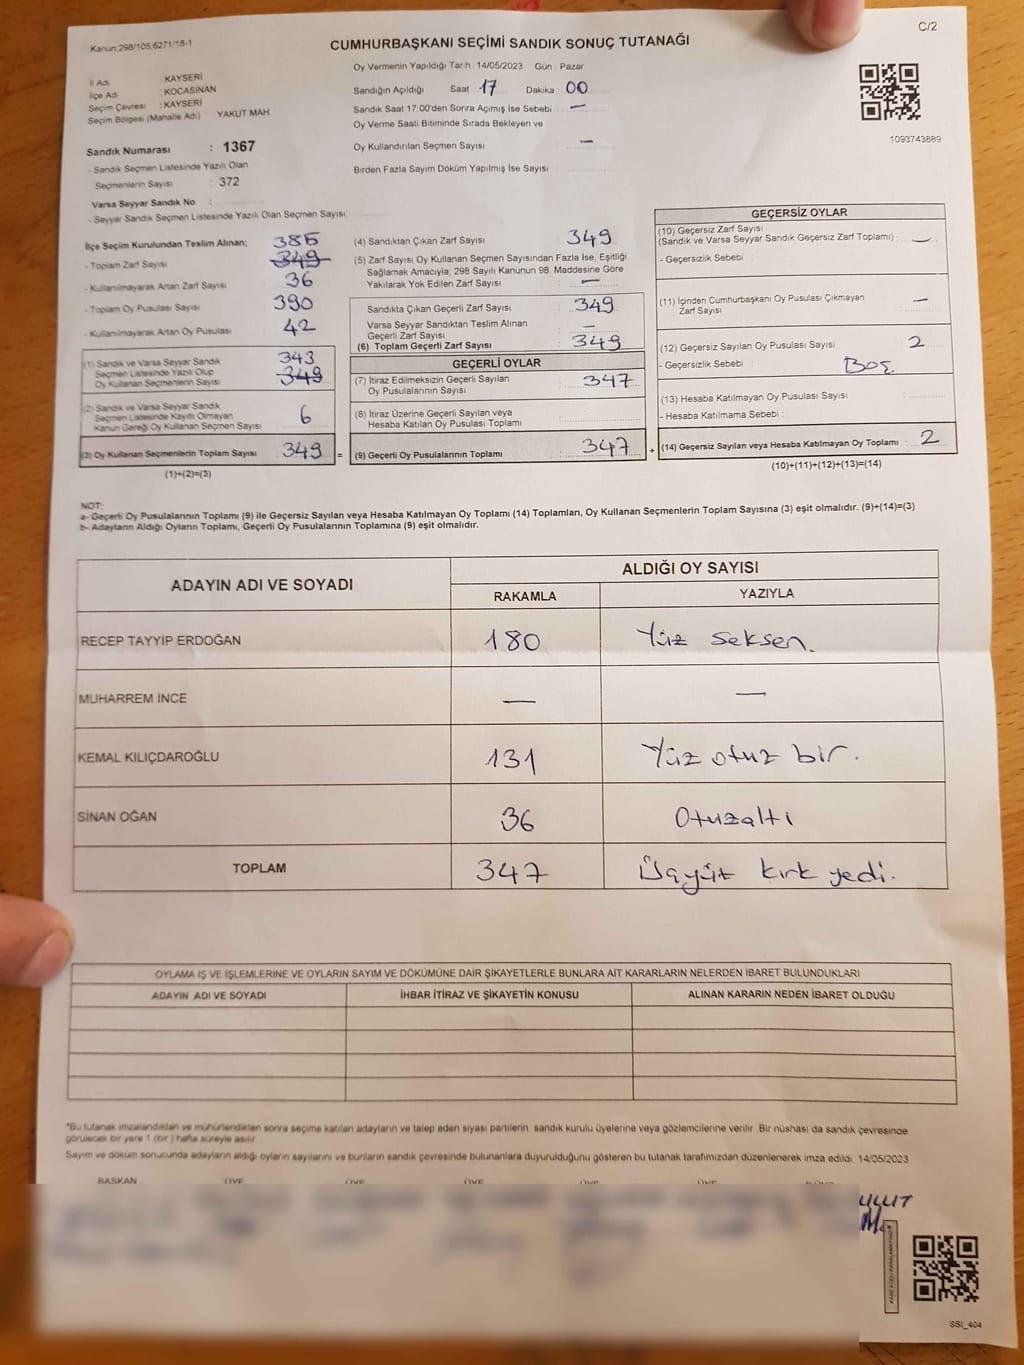 C/2
Kanun:298/105;6271/18-1
CUMHURBAŞKANI SEÇİMİ SANDIK SONUÇ TUTANAĞI
İl Adı : KAYSERİ
İlçe Adı : KOCASİNAN
Seçim Çevresi : KAYSERİ
Seçim Bölgesi (Mahalle Adı) YAKUT MAH
Sandık Numarası : 1367
- Sandık Seçmen Listesinde Yazılı Olan
Seçmenlerin Sayısı : 372
Varsa Seyyar Sandık No :
- Seyyar Sandık Seçmen Listesinde Yazılı Olan Seçmen Sayısı:
Oy Vermenin Yapıldığı Tarih : 14/05/2023 Gün : Pazar
Sandığın Açıldığı Saat : 17 Dakika : 00
Sandık Saat 17:00'den Sonra Açılmış İse Sebebi : —
Oy Verme Saati Bitiminde Sırada Bekleyen ve
Oy Kullandırılan Seçmen Sayısı : —
Birden Fazla Sayım Döküm Yapılmış İse Sayısı :
1093743889
İlçe Seçim Kurulundan Teslim Alınan;
- Toplam Zarf Sayısı : 385 349
- Kullanılmayarak Artan Zarf Sayısı : 36
- Toplam Oy Pusulası Sayısı : 390
- Kullanılmayarak Artan Oy Pusulası : 42
(1) Sandık ve Varsa Seyyar Sandık
Seçmen Listesinde Yazılı Olup
Oy Kullanan Seçmenlerin Sayısı : 343 349
(2) Sandık ve Varsa Seyyar Sandık
Seçmen Listesinde Kaydı Olmayan
Kanun Gereği Oy Kullanan Seçmen Sayısı : 6
(3) Oy Kullanan Seçmenlerin Toplam Sayısı : 349 =
(1)+(2)=(3)
(4) Sandıktan Çıkan Zarf Sayısı : 349
(5) Zarf Sayısı Oy Kullanan Seçmen Sayısından Fazla İse, Eşitliği
Sağlamak Amacıyla; 298 Sayılı Kanunun 98. Maddesine Göre
Yakılarak Yok Edilen Zarf Sayısı : —
Sandıkta Çıkan Geçerli Zarf Sayısı : 349
Varsa Seyyar Sandıktan Teslim Alınan
Geçerli Zarf Sayısı : —
(6) Toplam Geçerli Zarf Sayısı : 349
GEÇERLİ OYLAR
(7) İtiraz Edilmeksizin Geçerli Sayılan
Oy Pusulasının Sayısı : 347
(8) İtiraz Üzerine Geçerli Sayılan veya
Hesaba Katılan Oy Pusulası Toplamı :
(9) Geçerli Oy Pusulalarının Toplamı : 347 +
GEÇERSİZ OYLAR
(10) Geçersiz Zarf Sayısı
(Sandık ve Varsa Seyyar Sandık Geçersiz Zarf Toplamı) : —
- Geçersizlik Sebebi :
(11) İçinden Cumhurbaşkanı Oy Pusulası Çıkmayan
Zarf Sayısı : —
(12) Geçersiz Sayılan Oy Pusulası Sayısı : 2
- Geçersizlik Sebebi : Boş.
(13) Hesaba Katılmayan Oy Pusulası Sayısı :
- Hesaba Katılmama Sebebi :
(14) Geçersiz Sayılan veya Hesaba Katılmayan Oy Toplamı : 2
(10)+(11)+(12)+(13)=(14)
NOT:
a- Geçerli Oy Pusulalarının Toplamı (9) ile Geçersiz Sayılan veya Hesaba Katılmayan Oy Toplamı (14) Toplamları, Oy Kullanan Seçmenlerin Toplam Sayısına (3) eşit olmalıdır. (9)+(14)=(3)
b- Adayların Aldığı Oyların Toplamı, Geçerli Oy Pusulalarının Toplamına (9) eşit olmalıdır.
ADAYIN ADI VE SOYADI ALDIĞI OY SAYISI
RAKAMLA YAZIYLA
RECEP TAYYİP ERDOĞAN 180 Yüz seksen.
MUHARREM İNCE — —
KEMAL KILIÇDAROĞLU 131 Yüz otuz bir.
SİNAN OĞAN 36 Otuzaltı
TOPLAM 347 Üçyüz kırk yedi.
OYLAMA İŞ VE İŞLEMLERİNE VE OYLARIN SAYIM VE DÖKÜMÜNE DAİR ŞİKAYETLERLE BUNLARA AİT KARARLARIN NELERDEN İBARET BULUNDUKLARI
ADAYIN ADI VE SOYADI İHBAR İTİRAZ VE ŞİKAYETİN KONUSU ALINAN KARARIN NEDEN İBARET OLDUĞU
*Bu tutanak imzalandıktan ve mühürlendikten sonra seçime katılan adayların ve talep eden siyasi partilerin sandık kurulu üyelerine veya gözlemcilerine verilir. Bir nüshası da sandık çevresinde
görülecek bir yere 1 (bir) hafta süreyle asılır.
Sayım ve döküm sonucunda adayların aldığı oyların sayılarını ve bunların sandık çevresinde bulunanlara duyurulduğunu gösteren bu tutanak tarafımızdan düzenlenerek imza edildi. 14/05/2023
BAŞKAN ÜYE ÜYE ÜYE ÜYE ÜYE
SSI_404